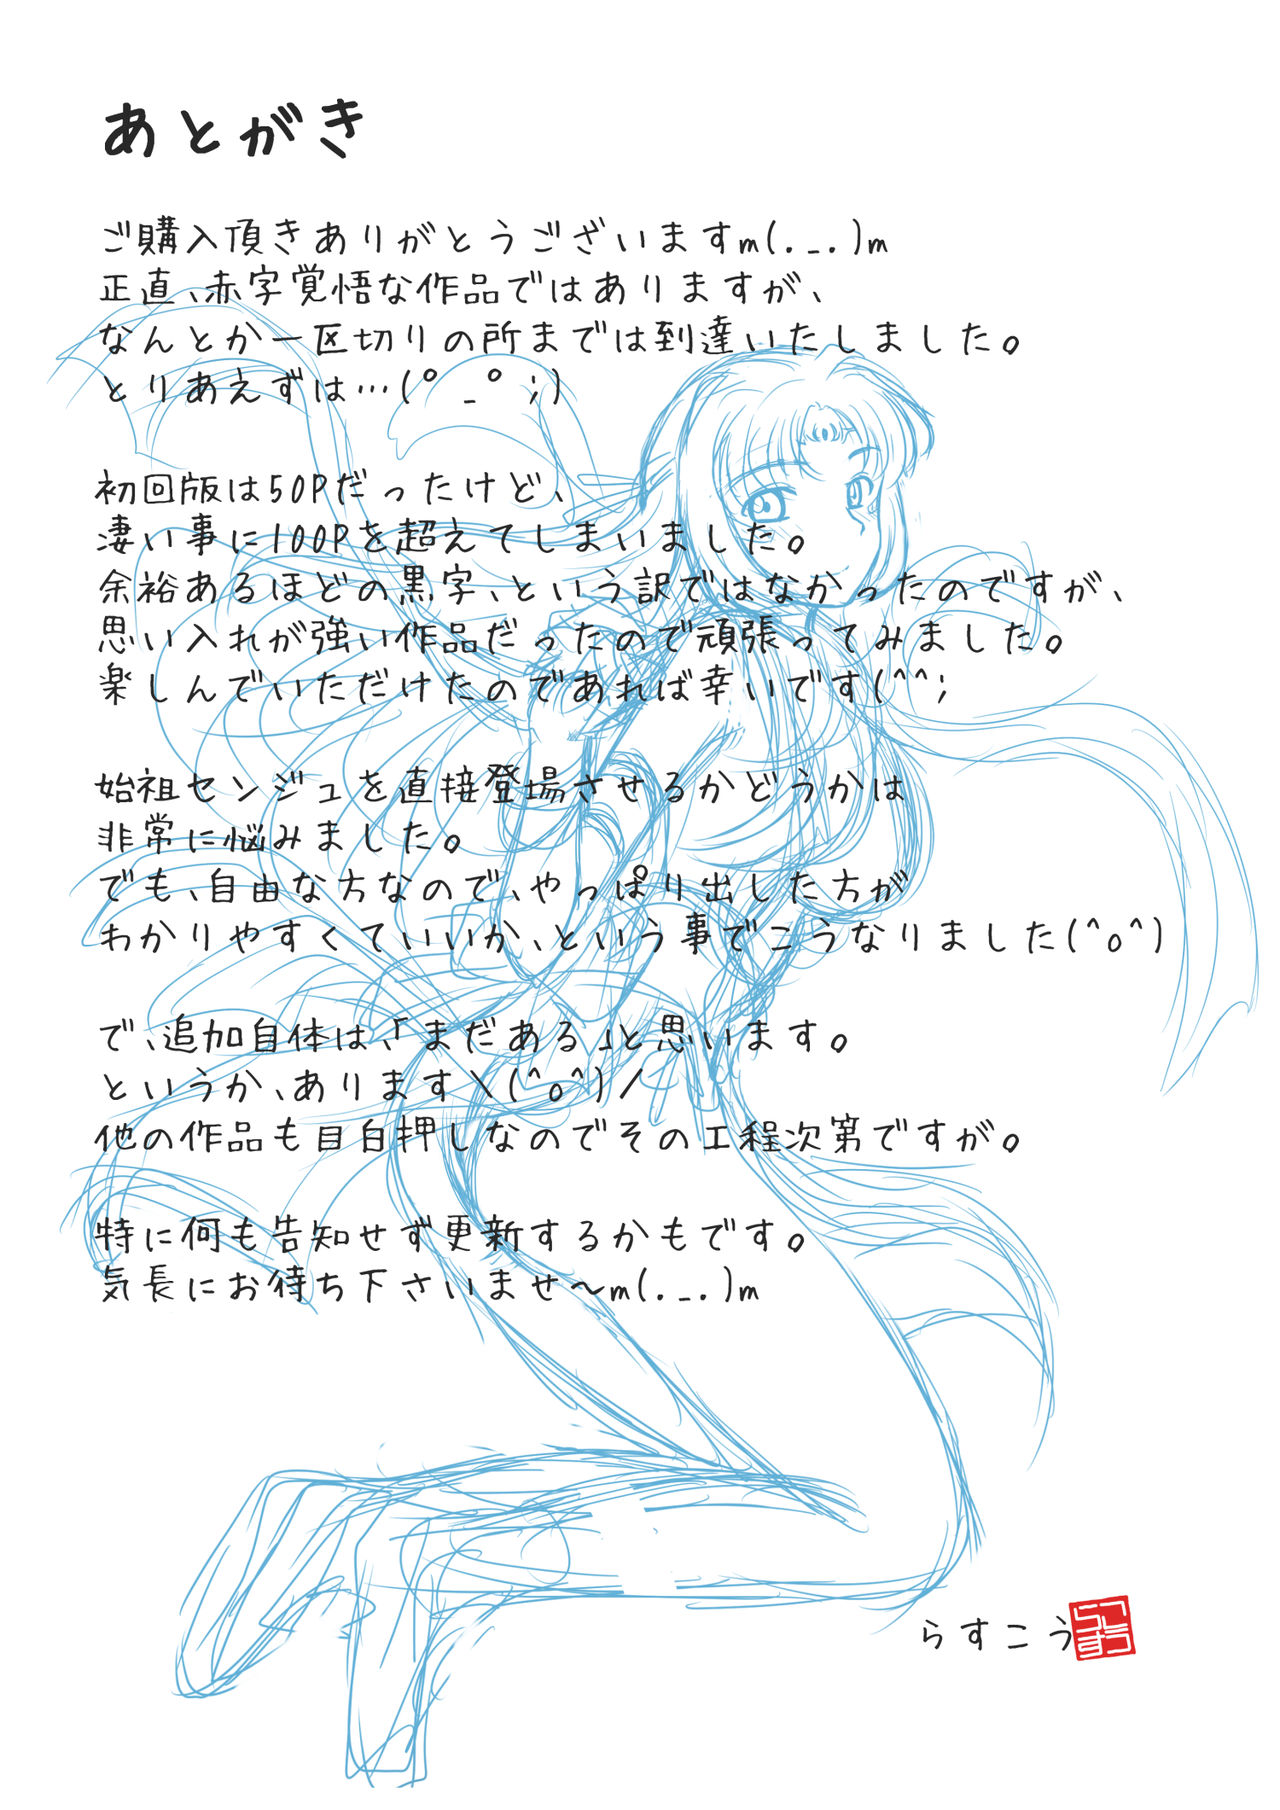 あとがき
ご購入頂きありがとうございますm(._.)m
正直、赤字覚悟な作品ではありますが、
なんとか一区切りの所までは到達いたしました。
とりあえずは…(°_°;)
初回版は50Pだったけど、
凄い事に100Pを超えてしまいました。
余裕あるほどの黒字、という訳ではなかったのですが、
思い入れが強い作品だったので頑張ってみました。
楽しんでいただけたのであれば幸いです(^^;
始祖センジュを直接登場させるかどうかは
非常に悩みました。
でも、自由な方なので、やっぱり出した方が
わかりやすくていいか、という事でこうなりました(^o^)
で、追加自体は、「まだある」と思います。
というか、あります\(^o^)/
他の作品も目白押しなのでその工程次第ですが。
特に何も告知せず更新するかもです。
気長にお待ち下さいませ～m(._.)m
らすこう
らすこう